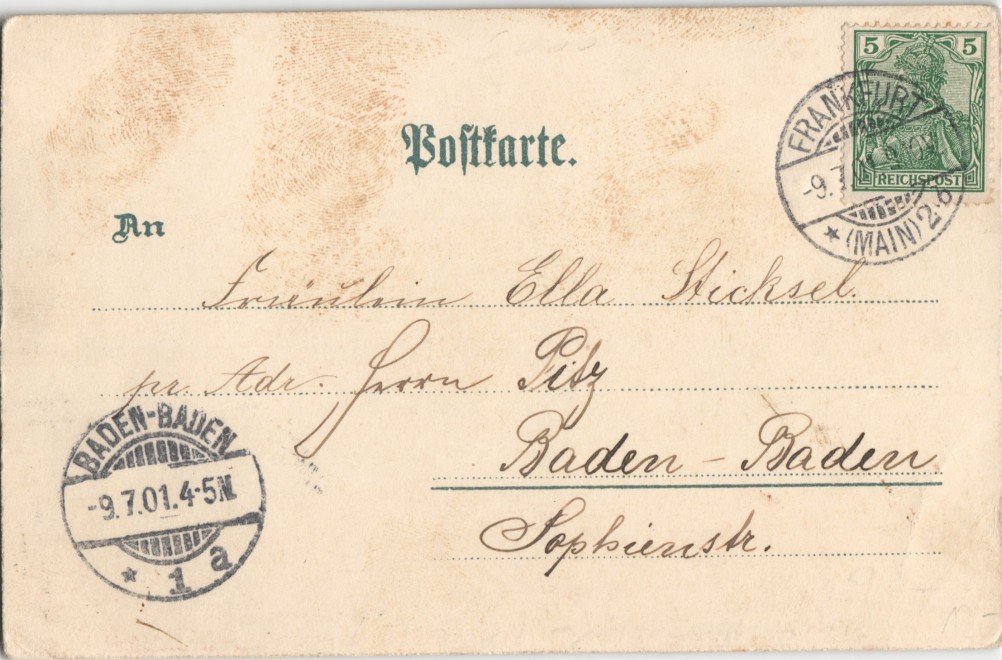 5 5
REICHSPOST
FRANKFURT
-9.7
* (MAIN) 2.b
Postkarte.
An
Fräulein Ella Sticksel.
pr. Adr. Herrn Pitz
Baden-Baden
Sophienstr.
BADEN-BADEN
-9.7.01.4-5N.
* 1 a